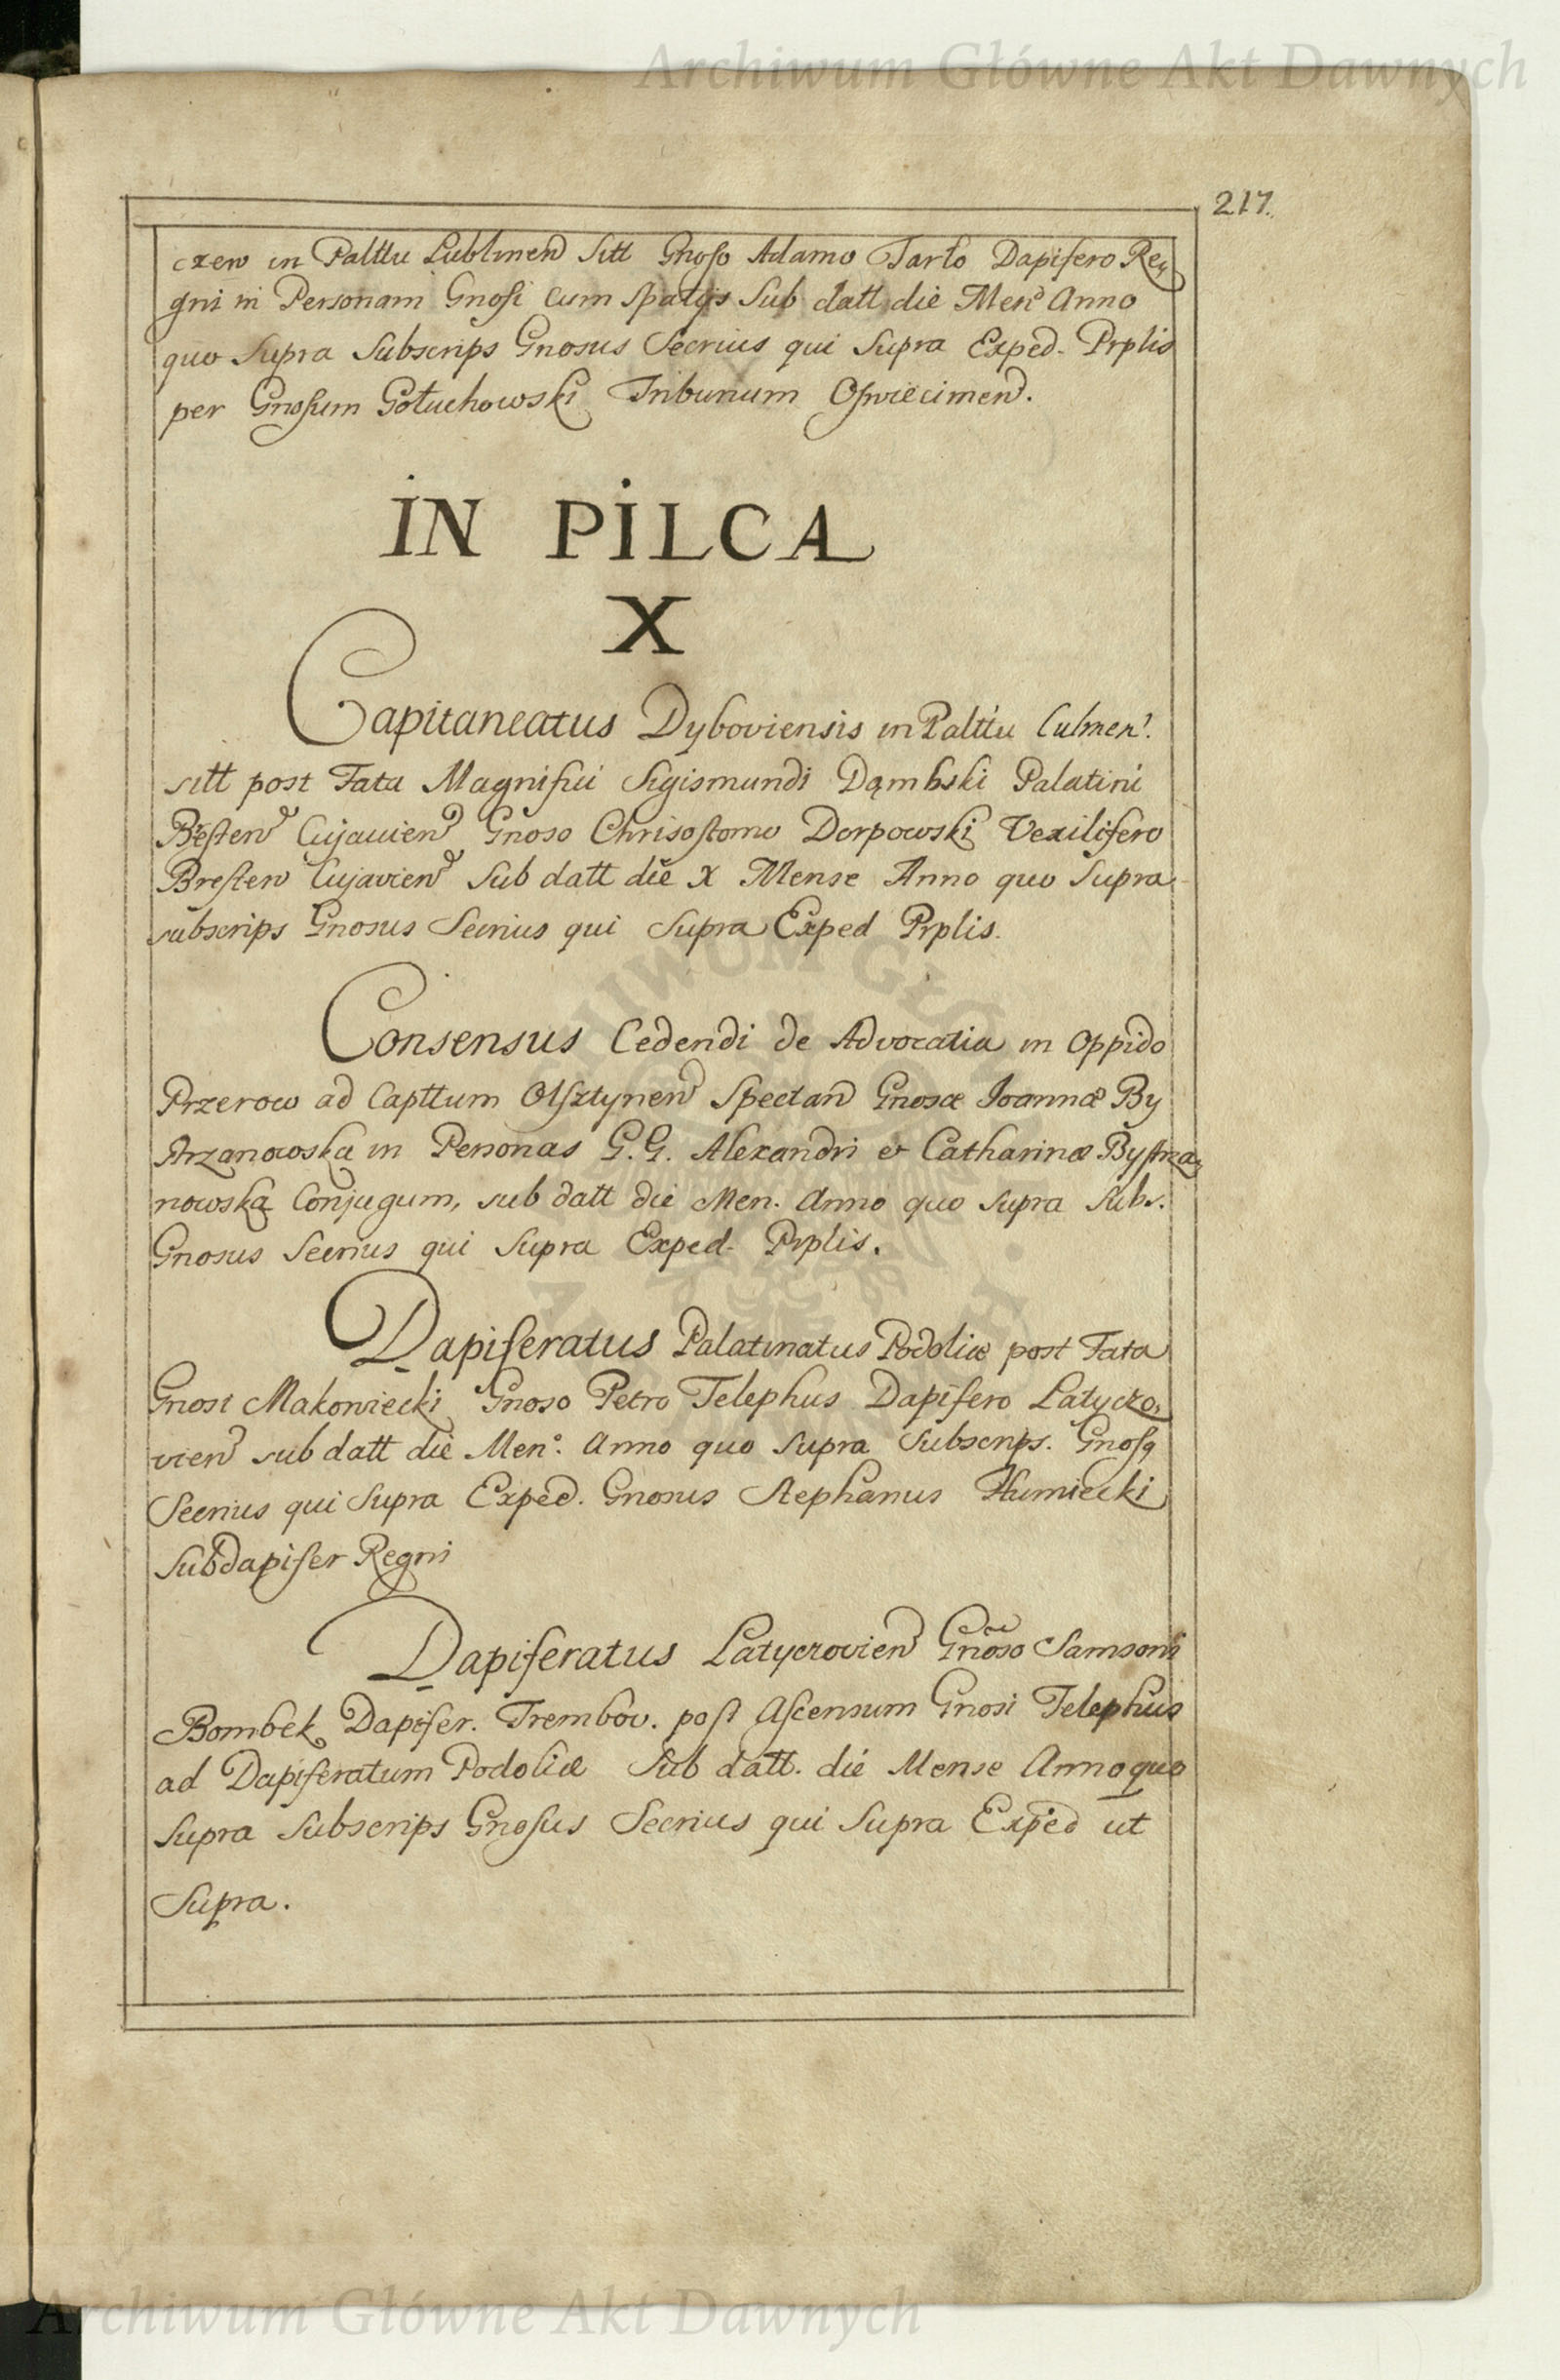 Archiwum Główne Akt Dawnych
217.
czen in Palttu Lublinen sitt Gnoso Adamo Tarło Dapifero Re-
gni in Personam Gnosi cum spatijs sub datt die Men Anno
quo supra subscrips Gnosus Secrius qui supra Exped. Prplis
per Gnosum Gołuchowski Tribunum Oswiecimen.
IN PILCA
X
Capitaneatus Dyboviensis in Palttu Culmen.
sitt post Fata Magnifici Sigismundi Dąmbski Palatini
Bresten Cujavien Gnoso Chrisostomo Dorpowski Vexilifero
Bresten Cujavien sub datt die X Mense Anno quo supra
subscrips Gnosus Secrius qui supra Exped Prplis.
Consensus Cedendi de Advocatia in Oppido
Przerow ad Capttum Olsztynen Spectan Gnosæ Joannæ By
strzanowska in Personas G.G. Alexandri et Catharinæ Bystrza-
nowska Conjugum, sub datt die Men. Anno quo supra subs.
Gnosus Secrius qui supra Exped. Prplis.
Dapiferatus Palatinatus Podoliæ post Fata
Gnosi Makowiecki Gnoso Petro Telephus Dapifero Latyczo-
vien sub datt die Men. Anno quo supra subscrips. Gnosq
Secrius qui supra Exped. Gnosus Stephanus Humiecki
Subdapifer Regni
Dapiferatus Latyczovien Gnoso Samsoni
Bombek Dapifer. Trembov. post Ascensum Gnosi Telephus
ad Dapiferatum Podoliæ sub datt. die Mense Anno quo
supra subscrips Gnosus Secrius qui supra Exped ut
supra.
Archiwum Główne Akt Dawnych